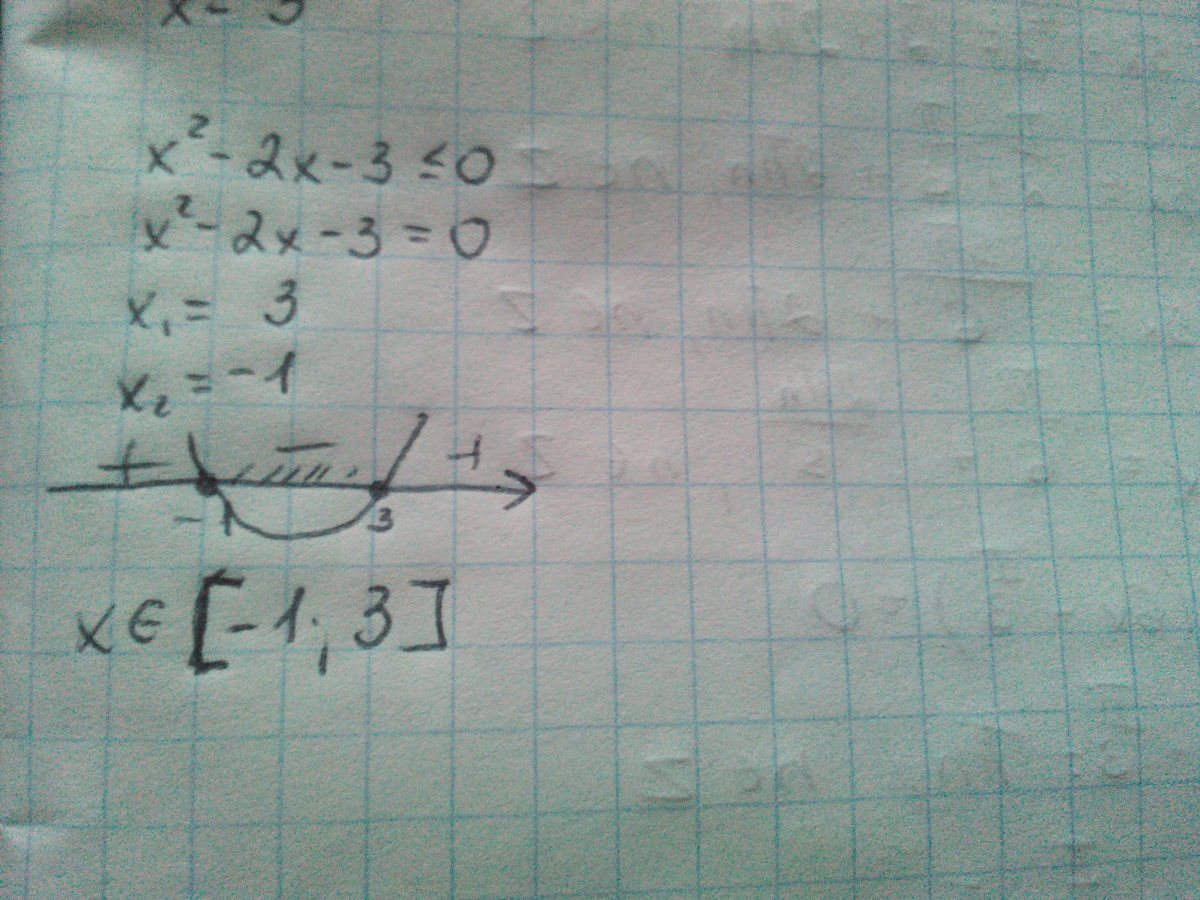 x² - 2x - 3 ≤ 0
x² - 2x - 3 = 0
x₁ = 3
x₂ = -1
+ - +
-1 3
x ∈ [-1; 3]